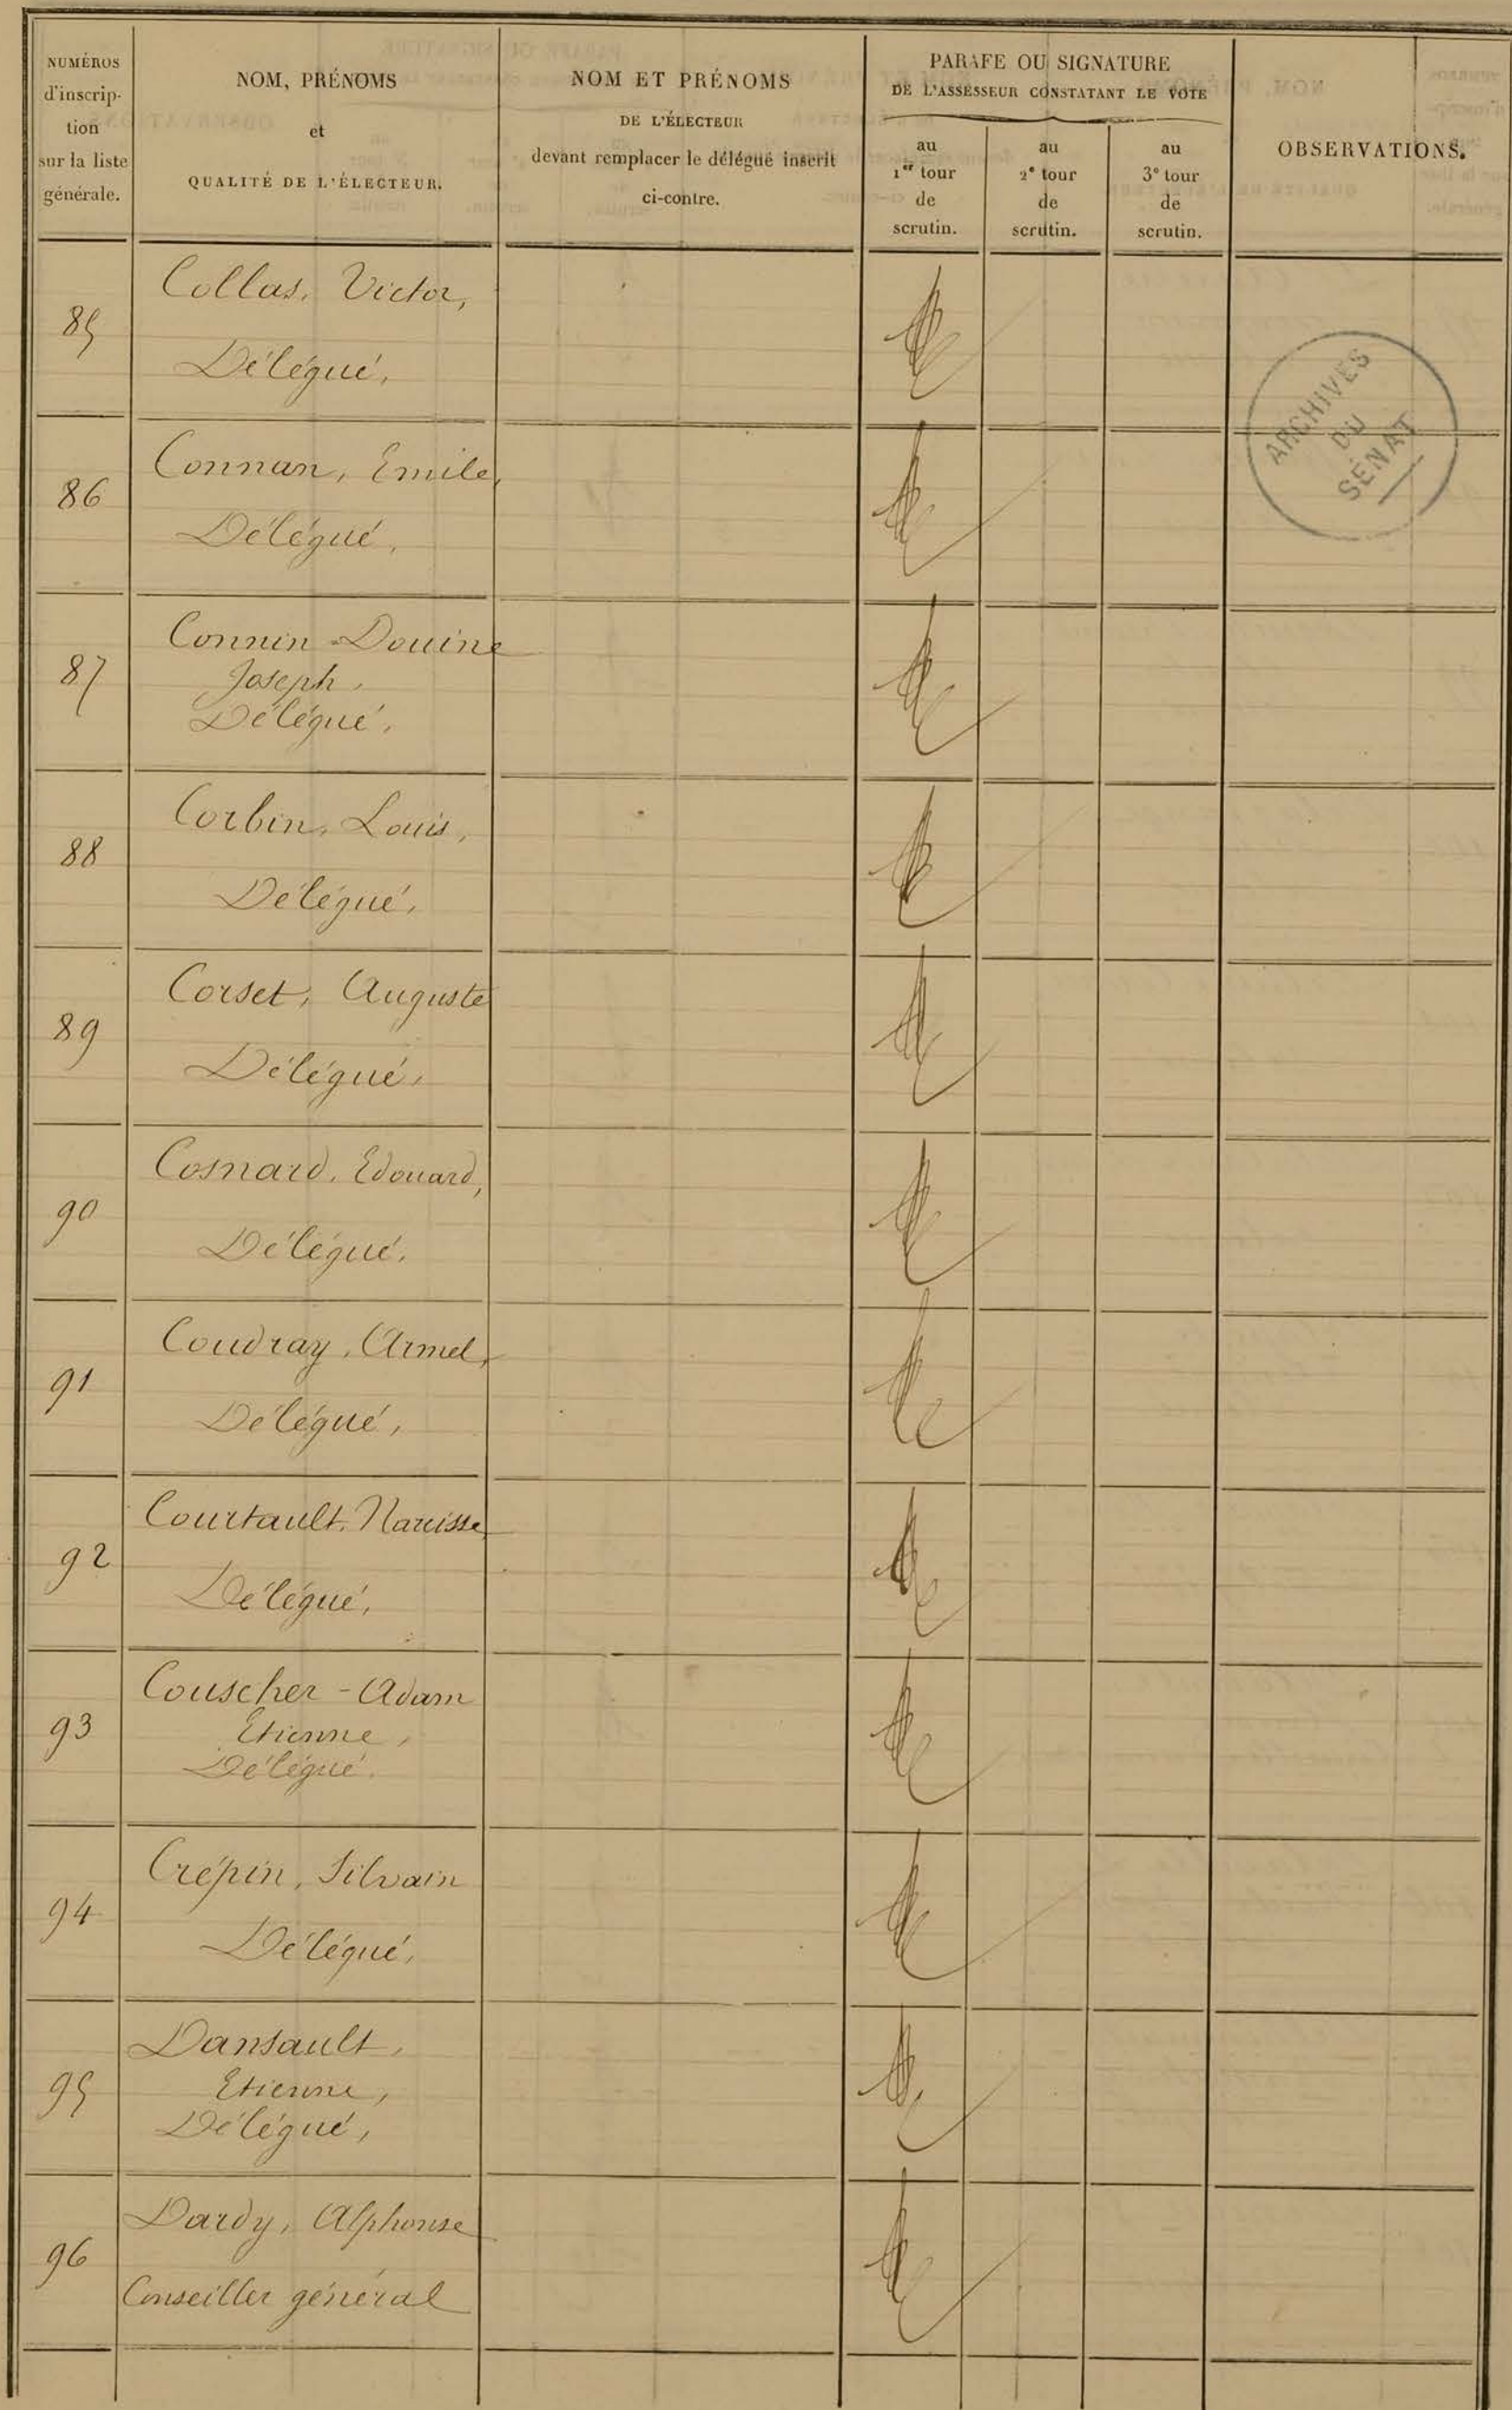 NUMÉROS
d'inscrip-
tion
sur la liste
générale.
NOM, PRÉNOMS
et
QUALITÉ DE L'ÉLECTEUR.
NOM ET PRÉNOMS
DE L'ÉLECTEUR
devant remplacer le délégué inscrit
ci-contre.
PARAFE OU SIGNATURE
DE L'ASSESSEUR CONSTATANT LE VOTE
au
1er tour
de
scrutin.
au
2e tour
de
scrutin.
au
3e tour
de
scrutin.
OBSERVATIONS.
85
Collas, Victor,
Délégué,
ARCHIVES
DU
SÉNAT
86
Connan, Emile,
Délégué,
87
Connin-Douine
Joseph,
Délégué,
88
Corbin, Louis,
Délégué,
89
Corset, Auguste
Délégué,
90
Cosnard, Edouard,
Délégué,
91
Coudray, Armel,
Délégué,
92
Courtault, Narcisse,
Délégué,
93
Couscher-Adam
Etienne,
Délégué.
94
Crépin, Silvain
Délégué,
95
Dansault,
Etienne,
Délégué,
96
Dardy, Alphonse
Conseiller général